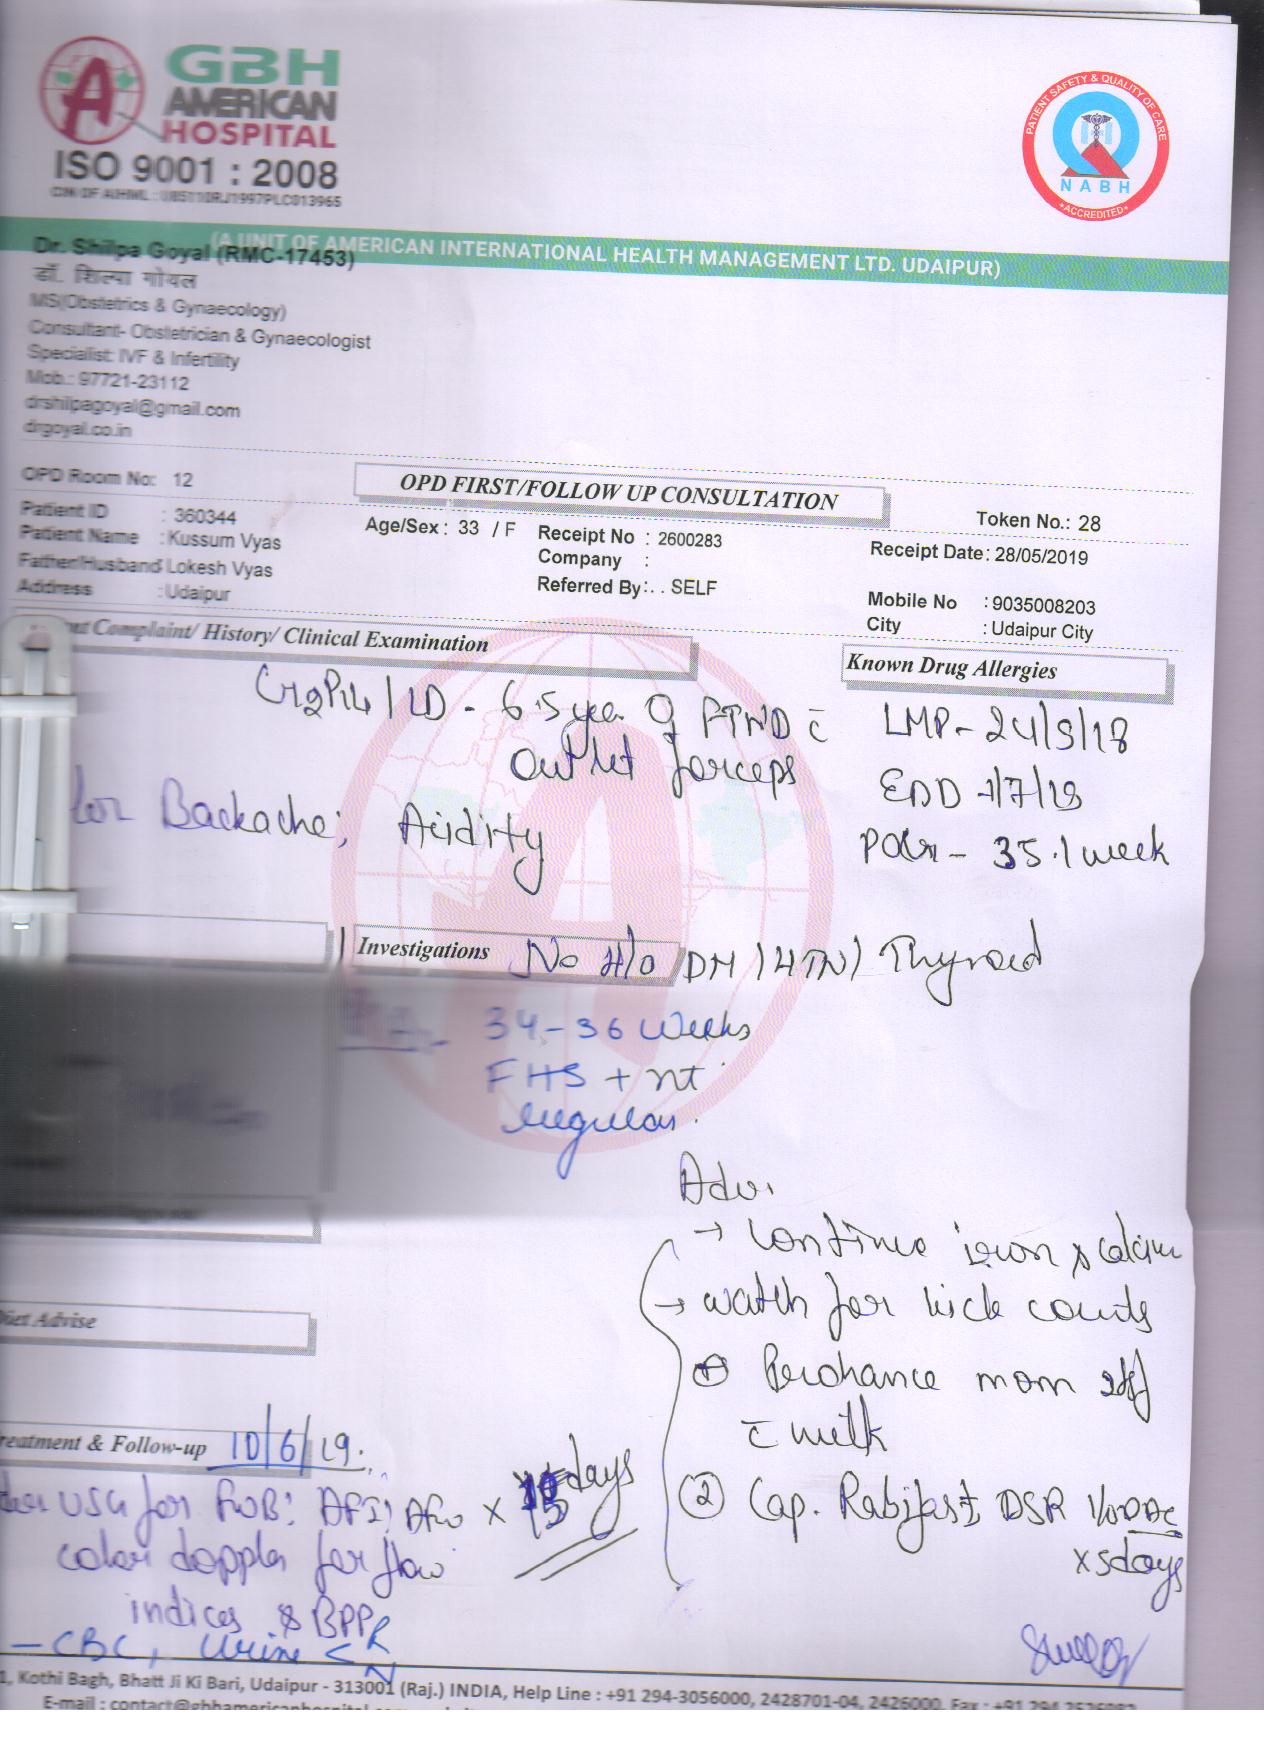 GBH
AMERICAN
HOSPITAL
ISO 9001 : 2008
CIN OF AIHML : U85110RJ1997PLC013965
PATIENT SAFETY & QUALITY OF CARE
NABH
ACCREDITED
(A UNIT OF AMERICAN INTERNATIONAL HEALTH MANAGEMENT LTD. UDAIPUR)
Dr. Shilpa Goyal (RMC-17453)
डॉ. शिल्पा गोयल
MS(Obstetrics & Gynaecology)
Consultant- Obstetrician & Gynaecologist
Specialist: IVF & Infertility
Mob.: 97721-23112
drshilpagoyal@gmail.com
drgoyal.co.in
OPD Room No: 12
OPD FIRST/FOLLOW UP CONSULTATION
Token No.: 28
Patient ID : 360344
Age/Sex : 33 / F
Receipt No : 2600283
Receipt Date: 28/05/2019
Patient Name : Kussum Vyas
Company :
Father/Husband: Lokesh Vyas
Referred By: . . SELF
Mobile No : 9035008203
Address : Udaipur
City : Udaipur City
Complaint/ History/ Clinical Examination
Known Drug Allergies
G2P1L1 / LD - 6.5 year FTND c̄
outlet forceps
LMP - 24/9/18
EDD - 1/7/19
POG - 35.1 week
for Backache; Acidity
Investigations
No H/o DM / HTN / Thyroid
34-36 weeks
FHS + nt
regular.
Adv.
→ Continue iron & calcium
→ watch for kick counts
① Prohance mom
c̄ milk
② Cap. Rabifast DSR 1/0D AC
x 5 days
Diet Advise
Treatment & Follow-up 10/6/19.
USG for FWB; AFI; x 15 days
color doppler for flow
indices & BPP
- CBC, Urine < R
N
Kothi Bagh, Bhatt Ji Ki Bari, Udaipur - 313001 (Raj.) INDIA, Help Line : +91 294-3056000, 2428701-04, 2426000, Fax :
E-mail :